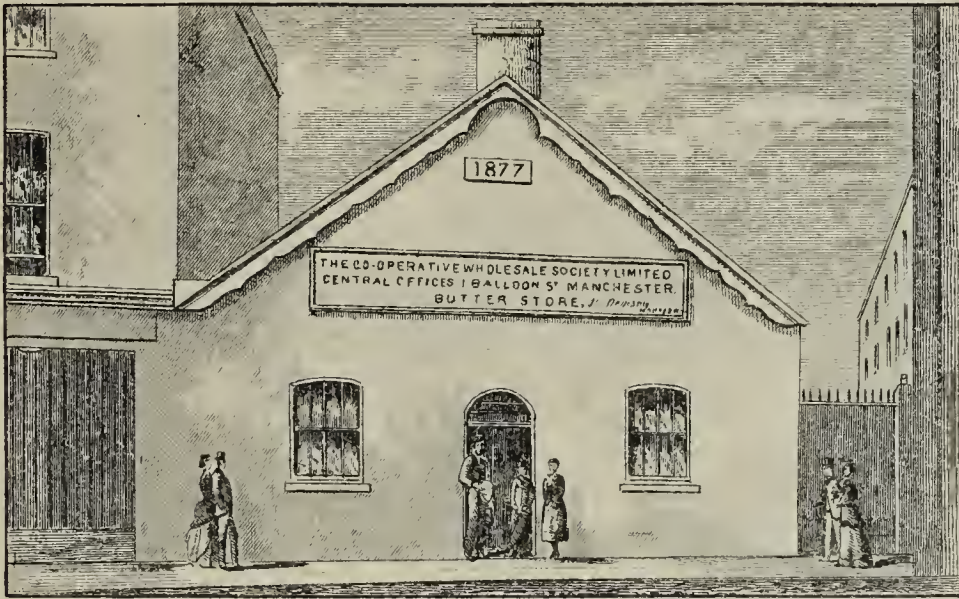 1877
THE CO-OPERATIVE WHOLESALE SOCIETY LIMITED
CENTRAL OFFICES 1 BALLOON ST MANCHESTER.
BUTTER STORE, J.